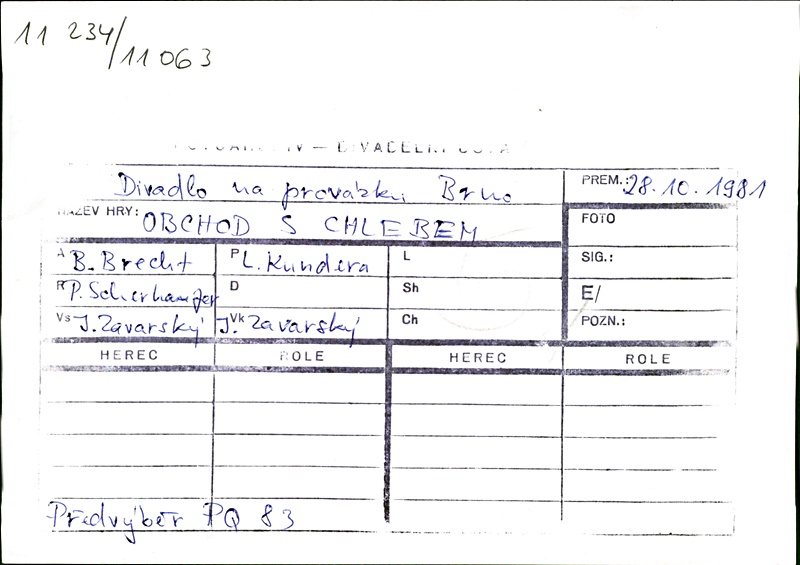 11 234/11 063
Divadlo na provázku Brno PREM.: 28.10.1981
NÁZEV HRY: OBCHOD S CHLEBEM FOTO
A B. Brecht P L. Kundera L SIG.:
R P. Scherhaufer D Sh E/
Vs J. Zavarský Vk J. Zavarský Ch POZN.:
HEREC ROLE HEREC ROLE
Předvýběr PQ 83